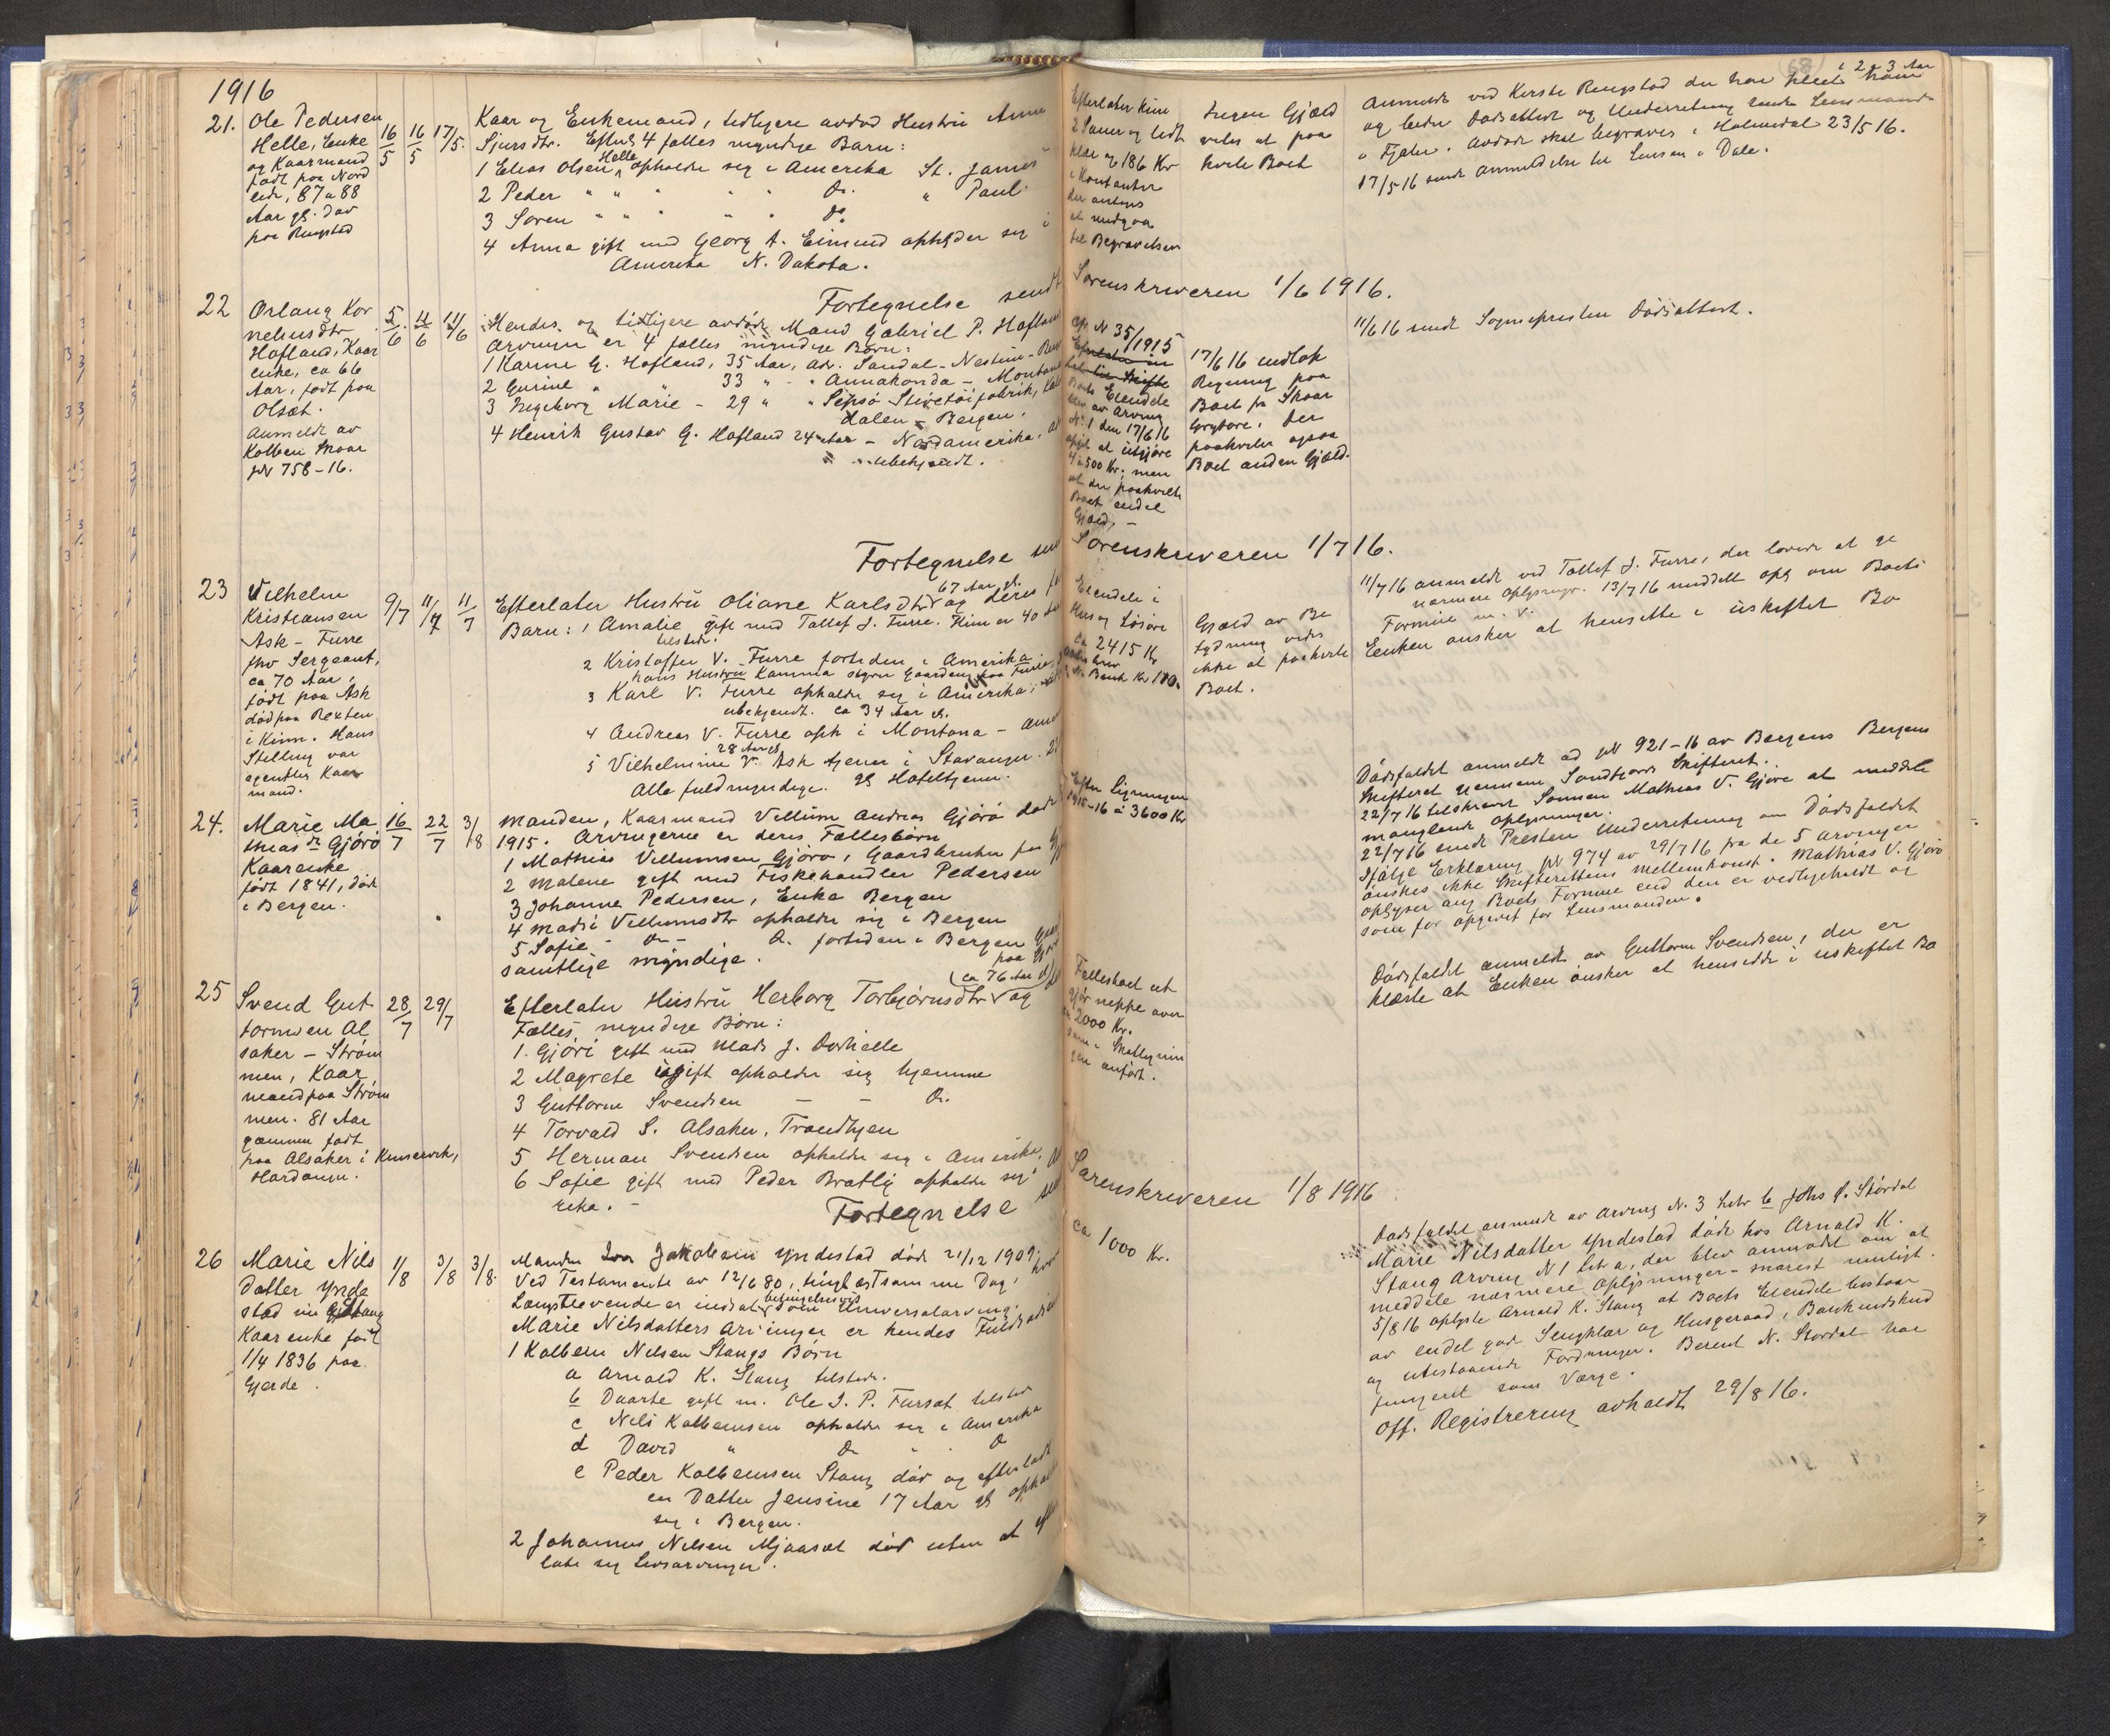 1916
21. Ole Pedersen
Helle, Enke
og Kaarmand
født paa Nord
eide, 87 a 88
Aar gl. Død
paa Ringstad
16/5 16/5 17/5.
Kaar og Enkemand, tidligere avdød Hustru Anna
Sjursdtr. Efterl. 4 fælles myndige Børn:
1 Elias Olsen Helle opholder sig i Amerika St. James
2 Peder " " " Do. " Paul.
3 Søren " " " " " Do.
4 Anna gift med Georg A. Eimund opholder sig i
Amerika N. Dakota.
Efterlater kun
2 Sauer og lidt
klær og 186 Kr
i Kontanter
der antages
at medgaa
til Begravelsen
Ingen Gjæld
vides at paa
hvile Boet
i 2 a 3 Aar
Anmeldt ved Kirste Ringstad der har pleiet ham
og beder Dødsattest og Underretning sendt Lensmanden
i Fjaler. Avdøde skal begraves i Holmedal 23/5 16.
17/5 16 sendt anmeldelse til Lensm. i Dale.
Fortegnelse sendt
Sorenskriveren 1/6 1916.
22 Orlaug Kor
neliusdtr
Hofland, Kaar
enke, ca 66
Aar, født paa
Olset.
Anmeldt av
Kolben Skaar
JN 758-16.
5/6 11/6 11/6
Hendes og tidligere avdøde Mand Gabriel P. Hofland
Arvinger er 4 fælles myndige Børn:
1 Karine G. Hofland, 35 Aar, adr. Sandal - Nestun -
2 Gurine " " 33 " - " Annakonda - Montana
3 Ingeborg Marie - 29 " " Skivetøifabrik,
dalen - Bergen.
4 Henrik Gustav G. Hofland 24 Aar - Nordamerika.
ubekjendt.
cfr N 35/1915
Boets Eiendele
blev av Arving
N. 1 den 17/6 16
opgit at utgjøre
4 a 500 Kr; men
at der paahvilte
Boet endel
Gjæld. -
17/6 16 indløk
Regning paa
Boet fra Skaar
Der
paahviler ogsaa
Boet anden Gjæld.
11/6 16 sendt Sognepresten Dødsattest.
Fortegnelse
Sorenskriveren 1/7 16.
23 Vilhelm
Kristiansen
Ask - Furre
fhv Sergeant,
ca 70 Aar,
født paa Ask
død paa Rexten
i Kinn. Hans
Stilling var
egentlig Kaar
mand.
9/7 11/7 11/7
67 Aar gl.
Efterlater Hustru Oliane Karlsdtr og deres
Børn: 1 Amalie gift med Tollef J. Furre. Hun er 40
tilstede.
2 Kristoffer V. Furre fortiden i Amerika
hans Hustru Kamma styrer Gaarden paa Furre.
3 Karl V. Furre opholder sig i Amerika,
ubekjendt. ca 34 Aar gl.
4 Andreas V. Furre oph i Montana -
28 Aar gl.
5 Vilhelmine V. Ask tjener i Stavanger.
Alle fuldmyndige. gl Hoteltjener.
Eiendele i
Hus og Løsøre
ca 2415 Kr
Gjæld av Be
tydning vides
ikke at paahvile
Boet.
11/7 16 anmeldt ved Tollef J. Furre, der lovede at gi
nærmere Oplysninger. 13/7 16 meddelt opl om Boets
Formue m. v.
Enken ønsker at hensitte i uskiftet Bo
24. Marie Ma
thias dtr Gjørø
Kaarenke
født 1841, død
i Bergen.
16/7 22/7 3/8
Manden, Kaarmand Vellum Andreas Gjørø døde
1915. Arvingerne er deres Fællesbørn
1 Mathias Vellumsen Gjørø, Gaardbruker paa
2 Malene gift med Fiskehandler Pedersen
3 Johanne Pedersen, Enke Bergen
4 Madsi Vellumsdtr opholder sig i Bergen
5 Sofie - Do - Do. fortiden i Bergen
samtlige myndige.
Efter Ligningen
1915-16 à 3600 Kr
Dødsfaldet anmeldt ad JN 921-16 av Bergens Bergens
Skifteret gjennem Søndfjords Skifteret.
22/7 16 tilskrevet Sønnen Mathias V. Gjøre at meddele
manglende oplysninger.
22/7 16 sendt Presten Underretning om Dødsfaldet
Ifølge Erklæring JN 974 av 29/7 16 fra de 5 Arvinger
ønskes ikke Skifterettens mellemkomst. Mathias V. Gjørø
oplyser ang Boets Formue end den er vedligeholdt og
som før opgivet for Lensmanden.
25 Svend Gut
tormsen Al
saker - Strøm
men, Kaar
mand paa Strøm
men. 81 Aar
gammel født
paa Alsaker i Kinservik,
Hardanger.
28/7 29/7
(ca 76 Aar
Efterlater Hustru Herborg Torbjørnsdtr og
Fælles myndige Børn:
1. Gjøri gift med Mads J. Dørhelle
2 Magrete ugift opholder sig hjemme
3 Guttorm Svendsen - - Do.
4 Torvald S. Alsaker, Trondhjem
5 Herman Svendsen opholder sig i Amerika.
6 Sofie gift med Peder Bratlig opholder sig
rika. -
Fællesboet ut
gjør neppe over
2000 Kr.
som i Skatteligning
gen anført.
Dødsfaldet anmeldt av Guttorm Svendsen, der er
klæste at Enken ønsker at hensidde i uskiftet Bo
Fortegnelse
Sorenskriveren 1/8 1916
26 Marie Nils
Datter Ynde
stad
Kaarenke født
1/4 1836 paa
Gjerde.
1/8 3/8 3/8.
Manden Iver Jakobsen Yndestad døde 21/12 1909;
Ved Testamente av 12/6 80, tinglæst samme Dag,
Længstlevende er indsat betingelsesvis som Universalarving.
Marie Nilsdatters Arvinger er hendes
1 Kolbein Nilsen Stangs Børn
a Arnold K. Stang tilstede.
b Daarte gift m. Ole J. P. Fursæt tilsted
c Nils Kolbeinsen opholder sig i Amerika
d David " Do " Do
e Peder Kolbeinsen Stang død og efterlodt
en Datter Jensine 17 Aar gl
sig i Bergen.
2 Johannes Nilsen Mjaaset død uten at
late sig Livsarvinger.
ca 1000 Kr.
Dødsfaldet anmeldt av Arving N. 3 Johs P. Stordal
Marie Nilsdatter Yndestad døde hos Arnold K.
Stang Arving N 1 litr a, der blev anmodet om at
meddele nærmere oplysninger - snarest muligt.
5/8 16 oplyste Arnold K. Stang at Boets Eiendele bestaar
av endel gode Sengklær og Husgeraad, Bankindskud
og utestaaende Fordringer. Berent N. Stordal har
fungeret som Værge.
Off. Registrering avholdt 29/8 16.